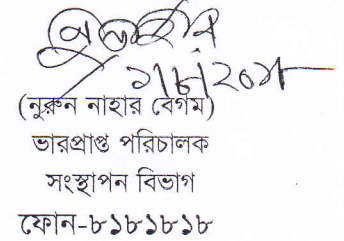 (নুরুন নাহার বেগম)
ভারপ্রাপ্ত পরিচালক
সংস্থাপন বিভাগ
ফোন-৮১৮১৮১৮